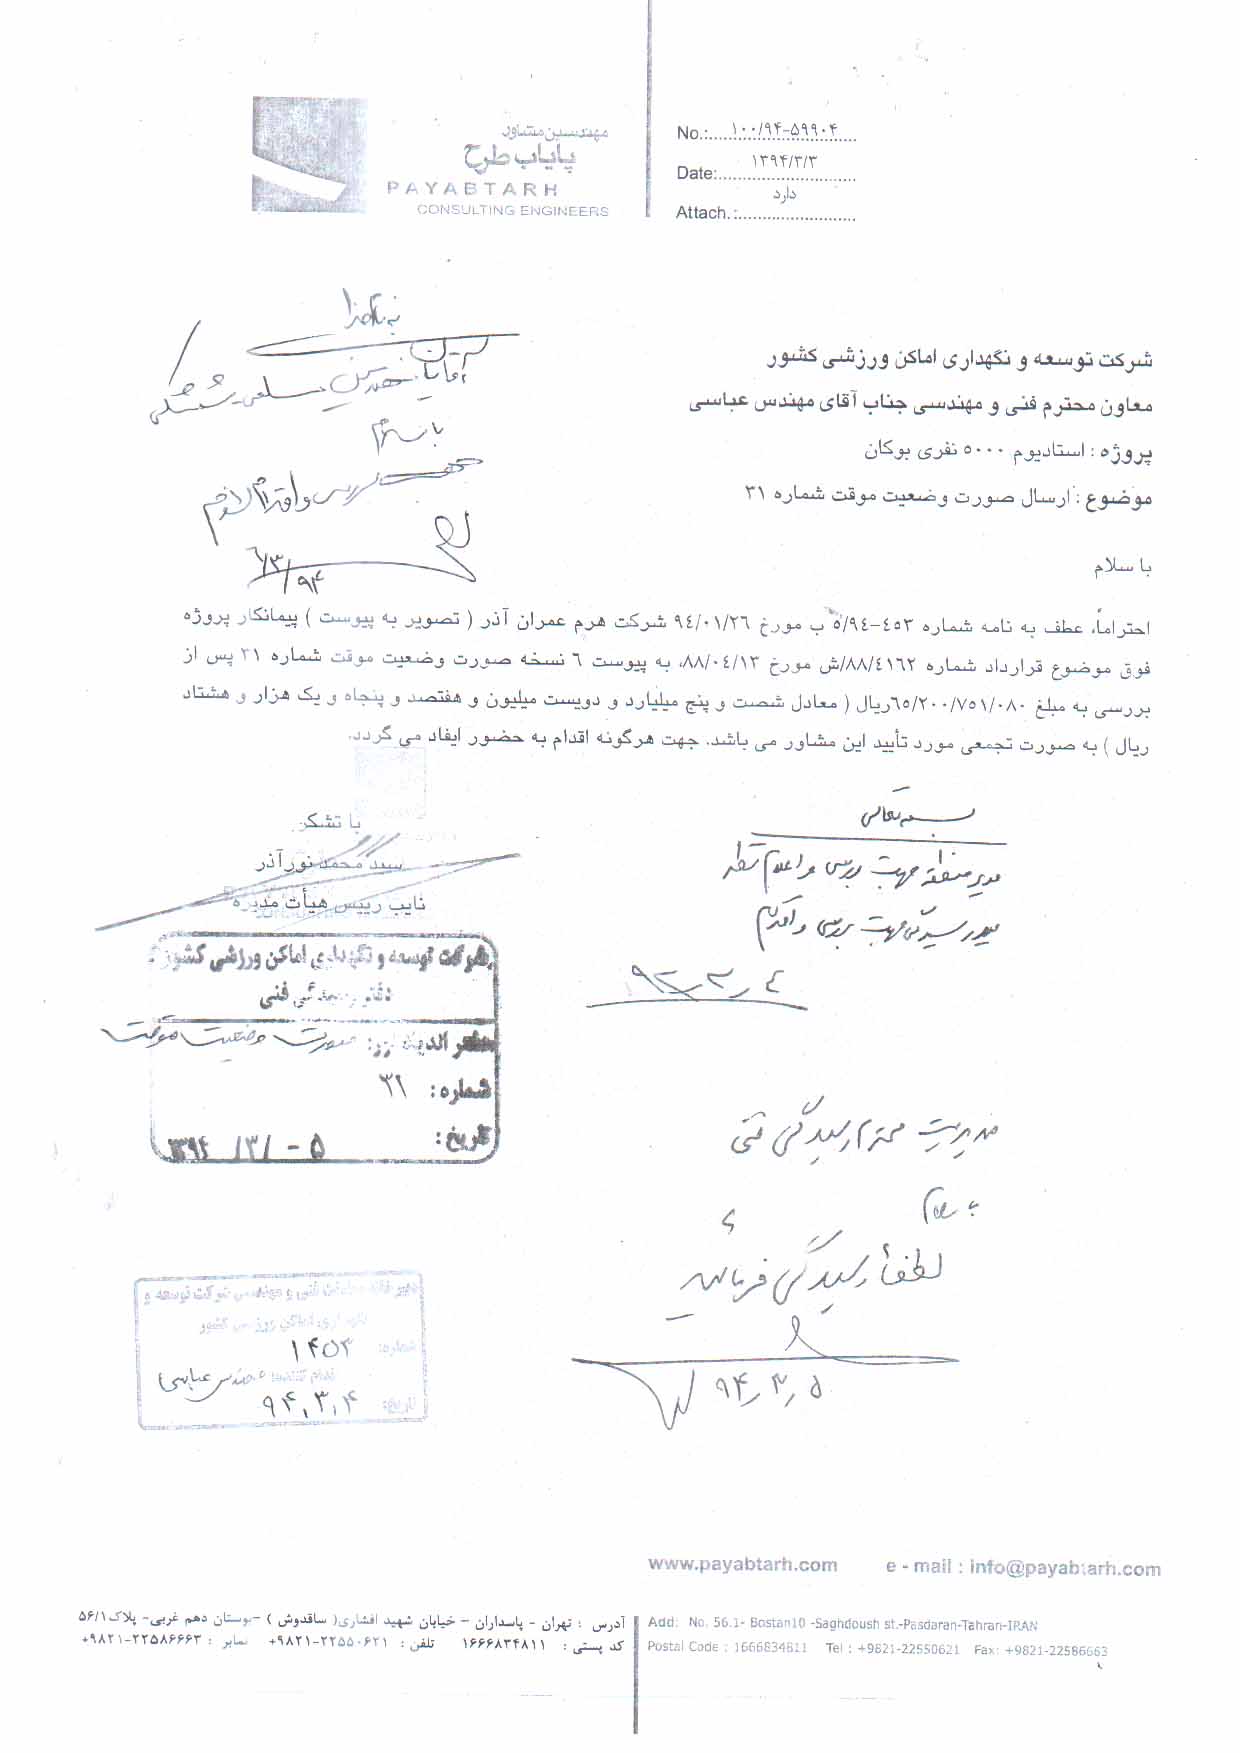 مهندسین مشاور
پایاب طرح
PAYABTARH
CONSULTING ENGINEERS
No.:....۱۰۰/۹۴-۵۹۹۰۴....
Date:....۱۳۹۴/۳/۳....
Attach.:....دارد....
شرکت توسعه و نگهداری اماکن ورزشی کشور
معاون محترم فنی و مهندسی جناب آقای مهندس عباسی
پروژه : استادیوم ۵۰۰۰ نفری بوکان
موضوع : ارسال صورت وضعیت موقت شماره ۳۱
به نام خدا
با سلام
جهت بررسی و اقدام لازم
۹۴/۳/۶
با سلام
احتراماً، عطف به نامه شماره ۹٤-٤٥٣/٥ ب مورخ ۹٤/۰۱/۲٦ شرکت هرم عمران آذر ( تصویر به پیوست ) پیمانکار پروژه
فوق موضوع قرارداد شماره ۸۸/٤۱٦۲/ش مورخ ۸۸/۰٤/۱۳، به پیوست ٦ نسخه صورت وضعیت موقت شماره ۳۱ پس از
بررسی به مبلغ ٦٥/۲۰۰/۷٥۱/۰۸۰ریال ( معادل شصت و پنج میلیارد و دویست میلیون و هفتصد و پنجاه و یک هزار و هشتاد
ریال ) به صورت تجمعی مورد تأیید این مشاور می باشد. جهت هرگونه اقدام به حضور ایفاد می گردد.
با تشکر
سید محمد نورآذر
نایب رییس هیأت مدیره
بسمه تعالی
مدیر منطقه جهت بررسی و اعلام نظر
جهت بررسی و اقدام
شرکت توسعه و نگهداری اماکن ورزشی کشور
دفتر رسیدگی فنی
صورت وضعیت موقت
شماره : ۳۱
تاریخ : ۵ - /۳/ ۱۳۹۴
مدیریت محترم رسیدگی فنی
با سلام
لطفاً رسیدگی فرمائید
۹۴/۳/۵
دبیرخانه معاونت فنی و مهندسی شرکت توسعه و
نگهداری اماکن ورزشی کشور
شماره: ۱۴۵۳
اقدام کننده: مهندس عباسی
تاریخ: ۹۴,۳,۴
www.payabtarh.com e - mail : info@payabtarh.com
آدرس : تهران - پاسداران - خیابان شهید افشاری( ساقدوش ) -بوستان دهم غربی- پلاک۵۶/۱
کد پستی : ۱۶۶۶۸۳۴۸۱۱ تلفن : ۲۲۵۵۰۶۲۱-۹۸۲۱+ نمابر : ۲۲۵۸۶۶۶۳-۹۸۲۱+
Add: No. 56.1- Bostan10 -Saghdoush st.-Pasdaran-Tahran-IRAN
Postal Code : 1666834811 Tel : +9821-22550621 Fax: +9821-22586663